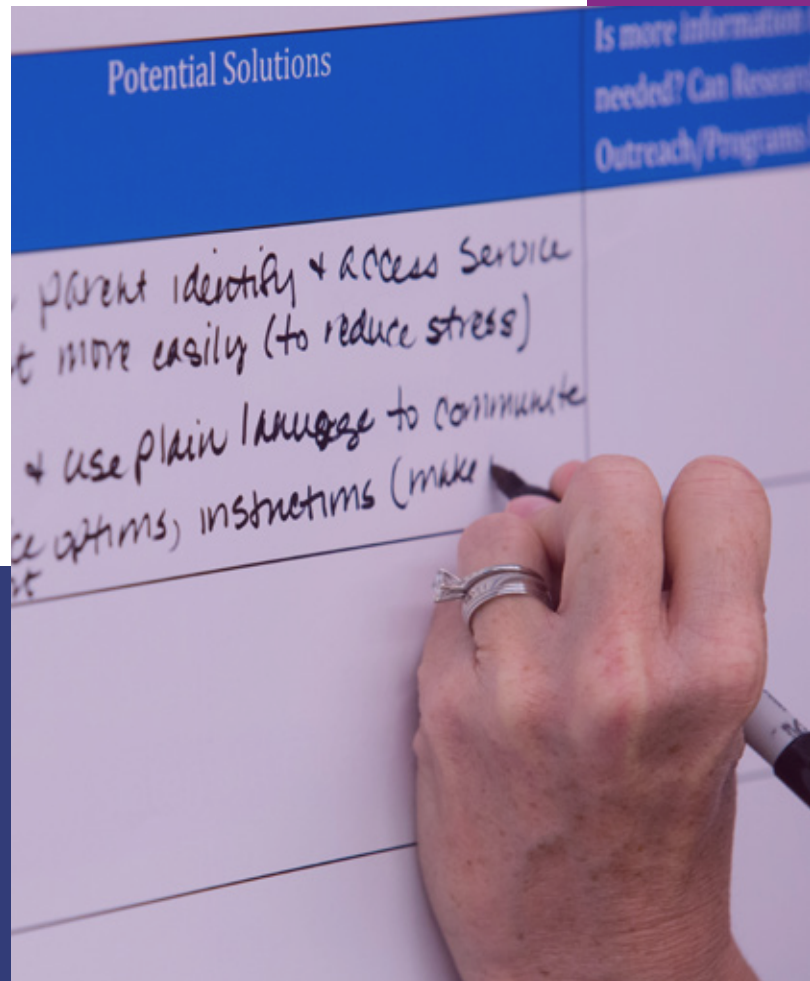 Potential Solutions
Is more information
needed? Can Research
Outreach/Programs
parent identify + access service
more easily (to reduce stress)
+ use plain language to communicate
options, instructions (make